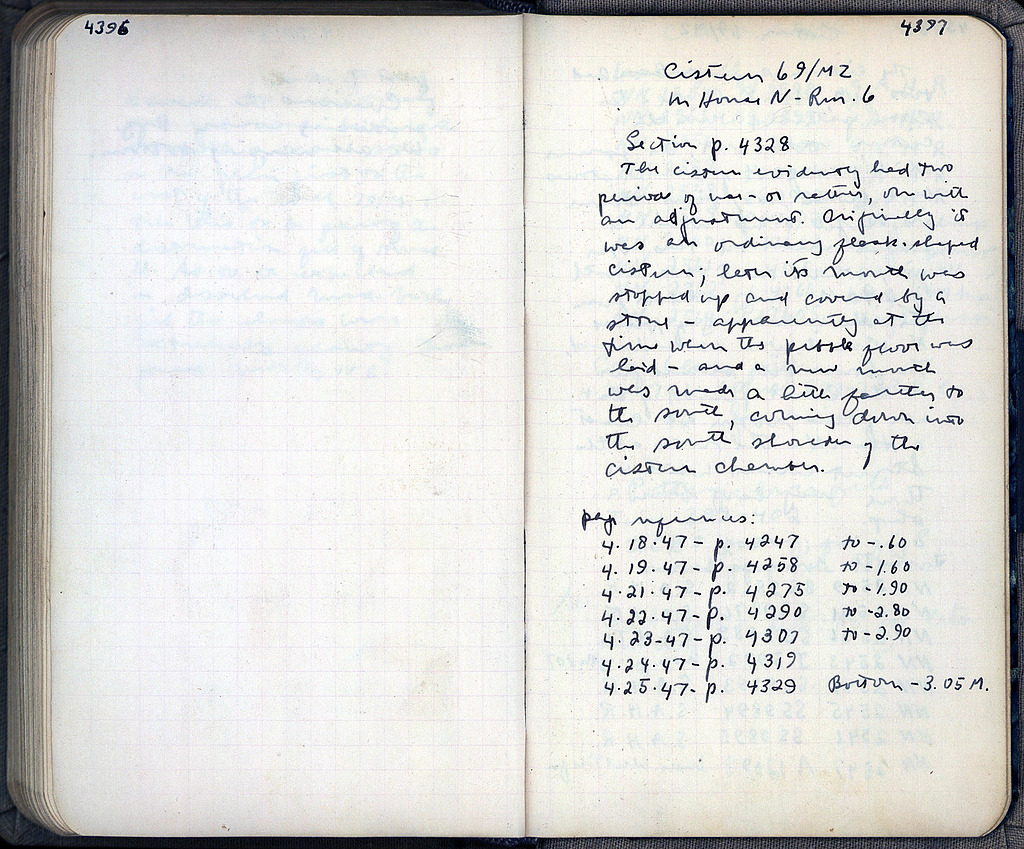 4396
4397
Cistern 69/MZ
in House N - Rm. 6
Section p. 4328
The cistern evidently had two
periods of use - or rather, one with
an adjustment. Originally it
was an ordinary flask-shaped
cistern; later its mouth was
stopped up and covered by a
stone - apparently at the
time when the pebble floor was
laid - and a new mouth
was made a little farther to
the south, coming down into
the south shoulder of the
cistern chamber.
page references:
4.18.47 - p. 4247 to -.60
4.19.47 - p. 4258 to -1.60
4.21.47 - p. 4275 to -1.90
4.22.47 - p. 4290 to -2.80
4.23-47 - p. 4307 to -2.90
4.24.47 - p. 4319
4.25.47 - p. 4329 Bottom - 3.05 M.